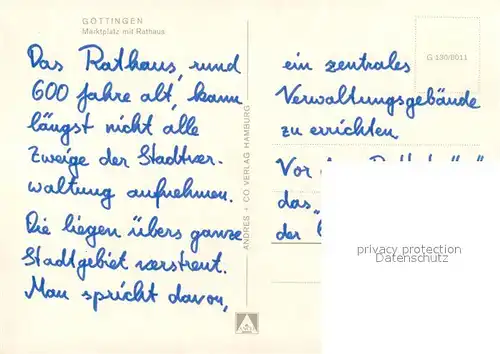 GÖTTINGEN
Marktplatz mit Rathaus
Das Rathaus, rund
600 Jahre alt, kann
längst nicht alle
Zweige der Stadtver-
waltung aufnehmen.
Die liegen übers ganze
Stadtgebiet verstreut.
Man spricht davon,
ANDRES + CO VERLAG HAMBURG
G 130/9011
ein zentrales
Verwaltungsgebäude
zu errichten
Vor
das "
der
privacy protection
Datenschutz